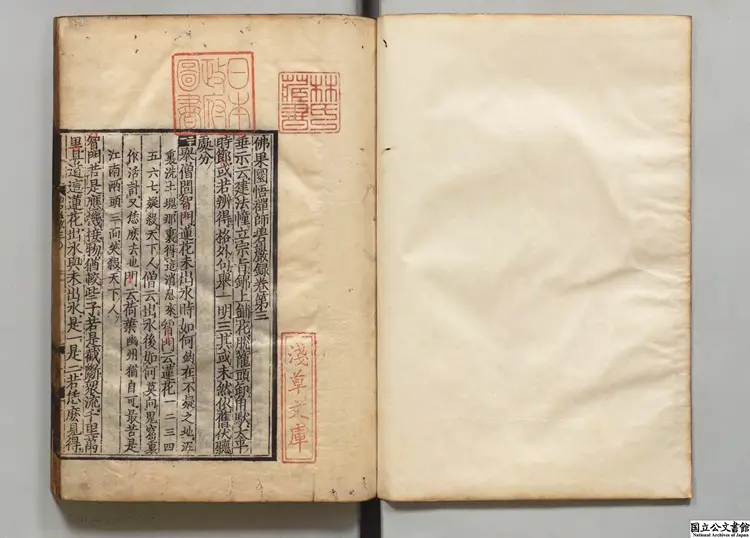 日本
政府
圖書
林氏
藏書
佛果圜悟禪師碧巖錄卷第三
垂示云建法幢立宗旨錦上鋪花脫籠頭卸角馱太平
時節或若辨得格外句舉一明三其或未然依舊伏聽
處分
舉僧問智門蓮花未出水時如何鉤在不疑之地泥
裏洗土塊那裏得這消息來智門云蓮花一二三四
五六七疑殺天下人僧云出水後如何莫向鬼窟裏
作活計又恁麼去也門云荷葉幽州猶自可最苦是
江南兩頭三面笑殺天下人
智門若是應機接物猶較些子若是截斷衆流千里萬
里且道這蓮花出水與未出水是一是二若恁麼見得
淺草文庫
国立公文書館
National Archives of Japan